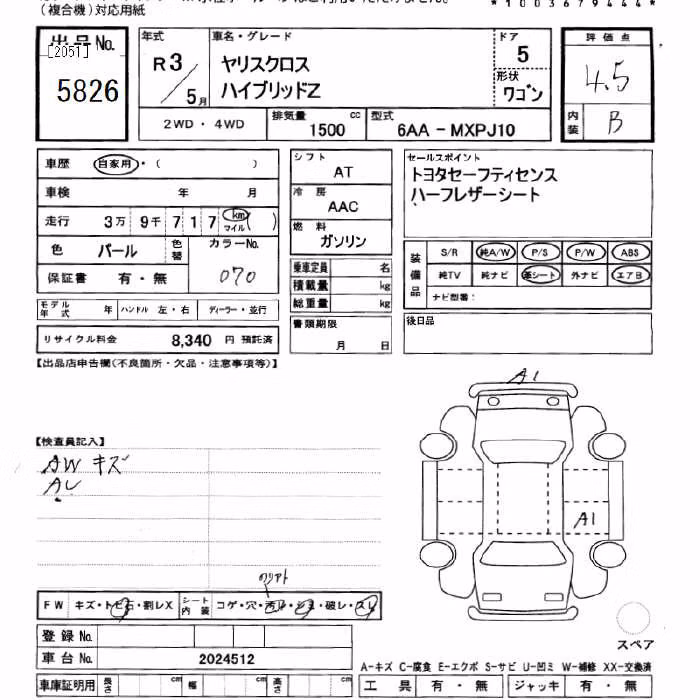 (複合機)対応用紙
*1003679444*
出品No.
[2051]
5826
年式
R3/5月
車名・グレード
ヤリスクロス
ハイブリッドZ
ドア
5
形状
ワゴン
評価点
4.5
内装
B
2WD・4WD
排気量 1500 cc
型式 6AA-MXPJ10
車歴 自家用・( )
車検 年 月
走行 3万9千717 km マイル ( )
色 パール 色替 カラーNo. 070
保証書 有・無
モデル年式 年 ハンドル 左・右 ディーラー・並行
リサイクル料金 8,340 円 預託済
シフト
AT
冷房
AAC
燃料
ガソリン
乗車定員 名
積載量 kg
総重量 kg
書類期限
月 日
セールスポイント
トヨタセーフティセンス
ハーフレザーシート
装備品
S/R 純A/W P/S P/W ABS
純TV 純ナビ 革シート 外ナビ エアB
ナビ型番:
後日品
【出品店申告欄(不良箇所・欠品・注意事項等)】
【検査員記入】
AWキズ
A1
A1
FW キズ・トビ石・割レX
シート内装 コゲ・穴・汚レ・シミ・破レ・スレ
登録No.
車台No. 2024512
車庫証明用 長さ cm 幅 cm 高さ cm
スペア
A-キズ C-腐食 E-エクボ S-サビ U-凹ミ W-補修 XX-交換済
工具 有・無 ジャッキ 有・無